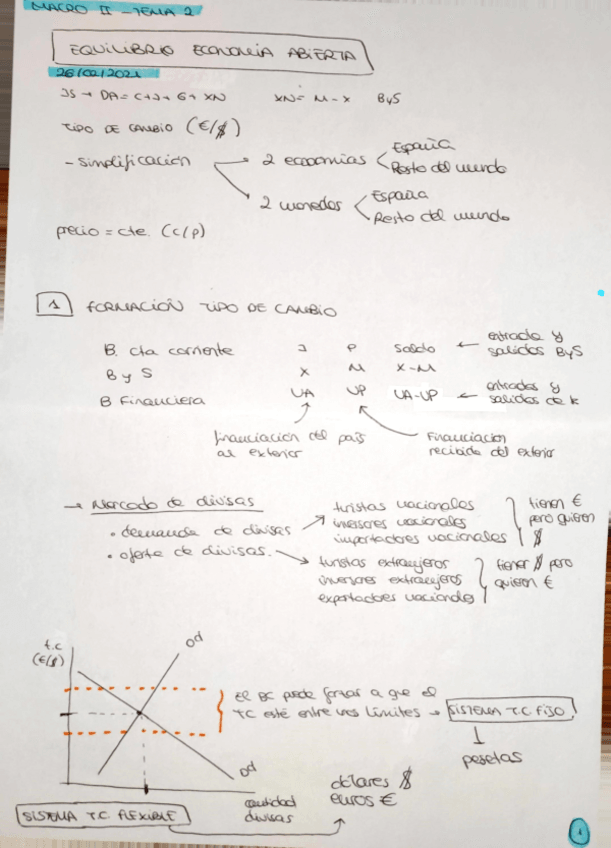 MACRO II - TEMA 2
EQUILIBRIO ECONOMÍA ABIERTA
26/02/2021
IS → DA = C + I + G + XN XN = M - X ByS
TIPO DE CAMBIO (€/$)
- Simplificación → 2 economías < España
Resto del mundo
→ 2 monedas < España
Resto del mundo
precio = cte. (c/p)
1 FORMACIÓN TIPO DE CAMBIO
B. cta corriente I P Saldo ← entrada y salidas ByS
B y S X M X-M
B Financiera VA VP VA-VP ← entradas y salidas de k
financiación del país al exterior
Financiación recibida del exterior
→ Mercado de divisas
• demanda de divisas → turistas nacionales
inversores nacionales
importadores nacionales
tienen € pero quieren $
• oferta de divisas → turistas extranjeros
inversores extranjeros
exportadores nacionales
tienen $ pero quieren €
t.c (€/$)
Od
Od
El BC puede forzar a que el
TC esté entre unos límites → SISTEMA T.C FIJO
↓
pesetas
cantidad divisas
dólares $
euros €
SISTEMA T.C. FLEXIBLE
1